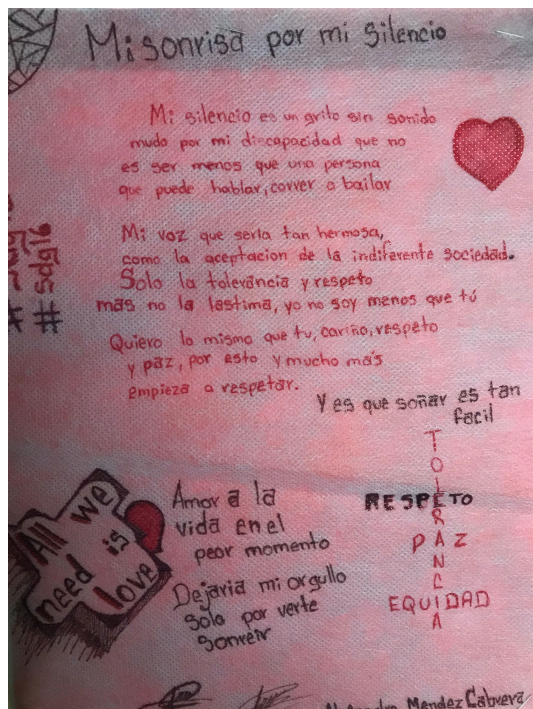 Mi sonrisa por mi silencio
Mi silencio es un grito sin sonido
mudo por mi discapacidad que no
es ser menos que una persona
que puede hablar, correr o bailar
Mi voz que seria tan hermosa,
como la aceptacion de la indiferente sociedad.
Solo la tolerancia y respeto
mas no la lastima, yo no soy menos que tú
Quiero lo mismo que tu, cariño, respeto
y paz, por esto y mucho más
empieza a respetar.
#sdg16
Y es que soñar es tan
facil
TOLERANCIA
RESPETO
PAZ
EQUIDAD
All we
need is
love
Amor a la
vida en el
peor momento
Dejaria mi orgullo
solo por verte
sonreir
Mendez Cabrera